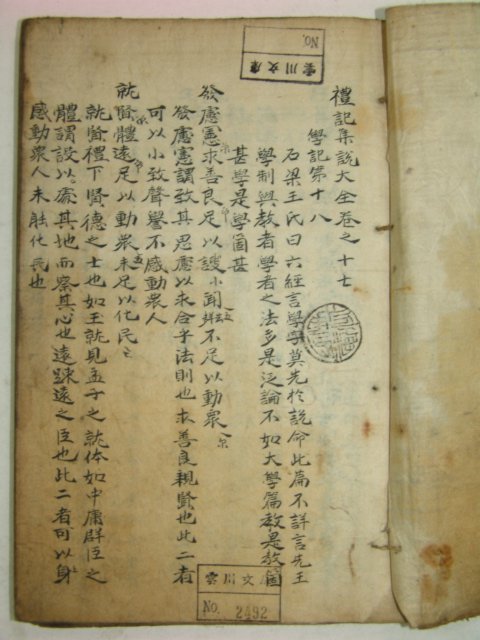 禮記集說大全卷之十七
學記第十八
石梁王氏曰六經言學學莫先於說命此篇不詳言先王
學制與教者學者之法多是泛論不如大學篇教是教箇
甚學是學箇甚
發慮憲求善良足以謏小聞不足以動衆
發慮憲謂致其思慮以求合乎法則也求善良親賢也此二者
可以小致聲譽不感動衆人
就賢體遠足以動衆未足以化民
就賢禮下賢德之士也如王就見孟子之就体如中庸群臣之
體謂設以處其地而察其心也遠踈遠之臣也此二者可以身
感動衆人未能化民也
雲川文庫
No.
雲川文庫
No. 2492